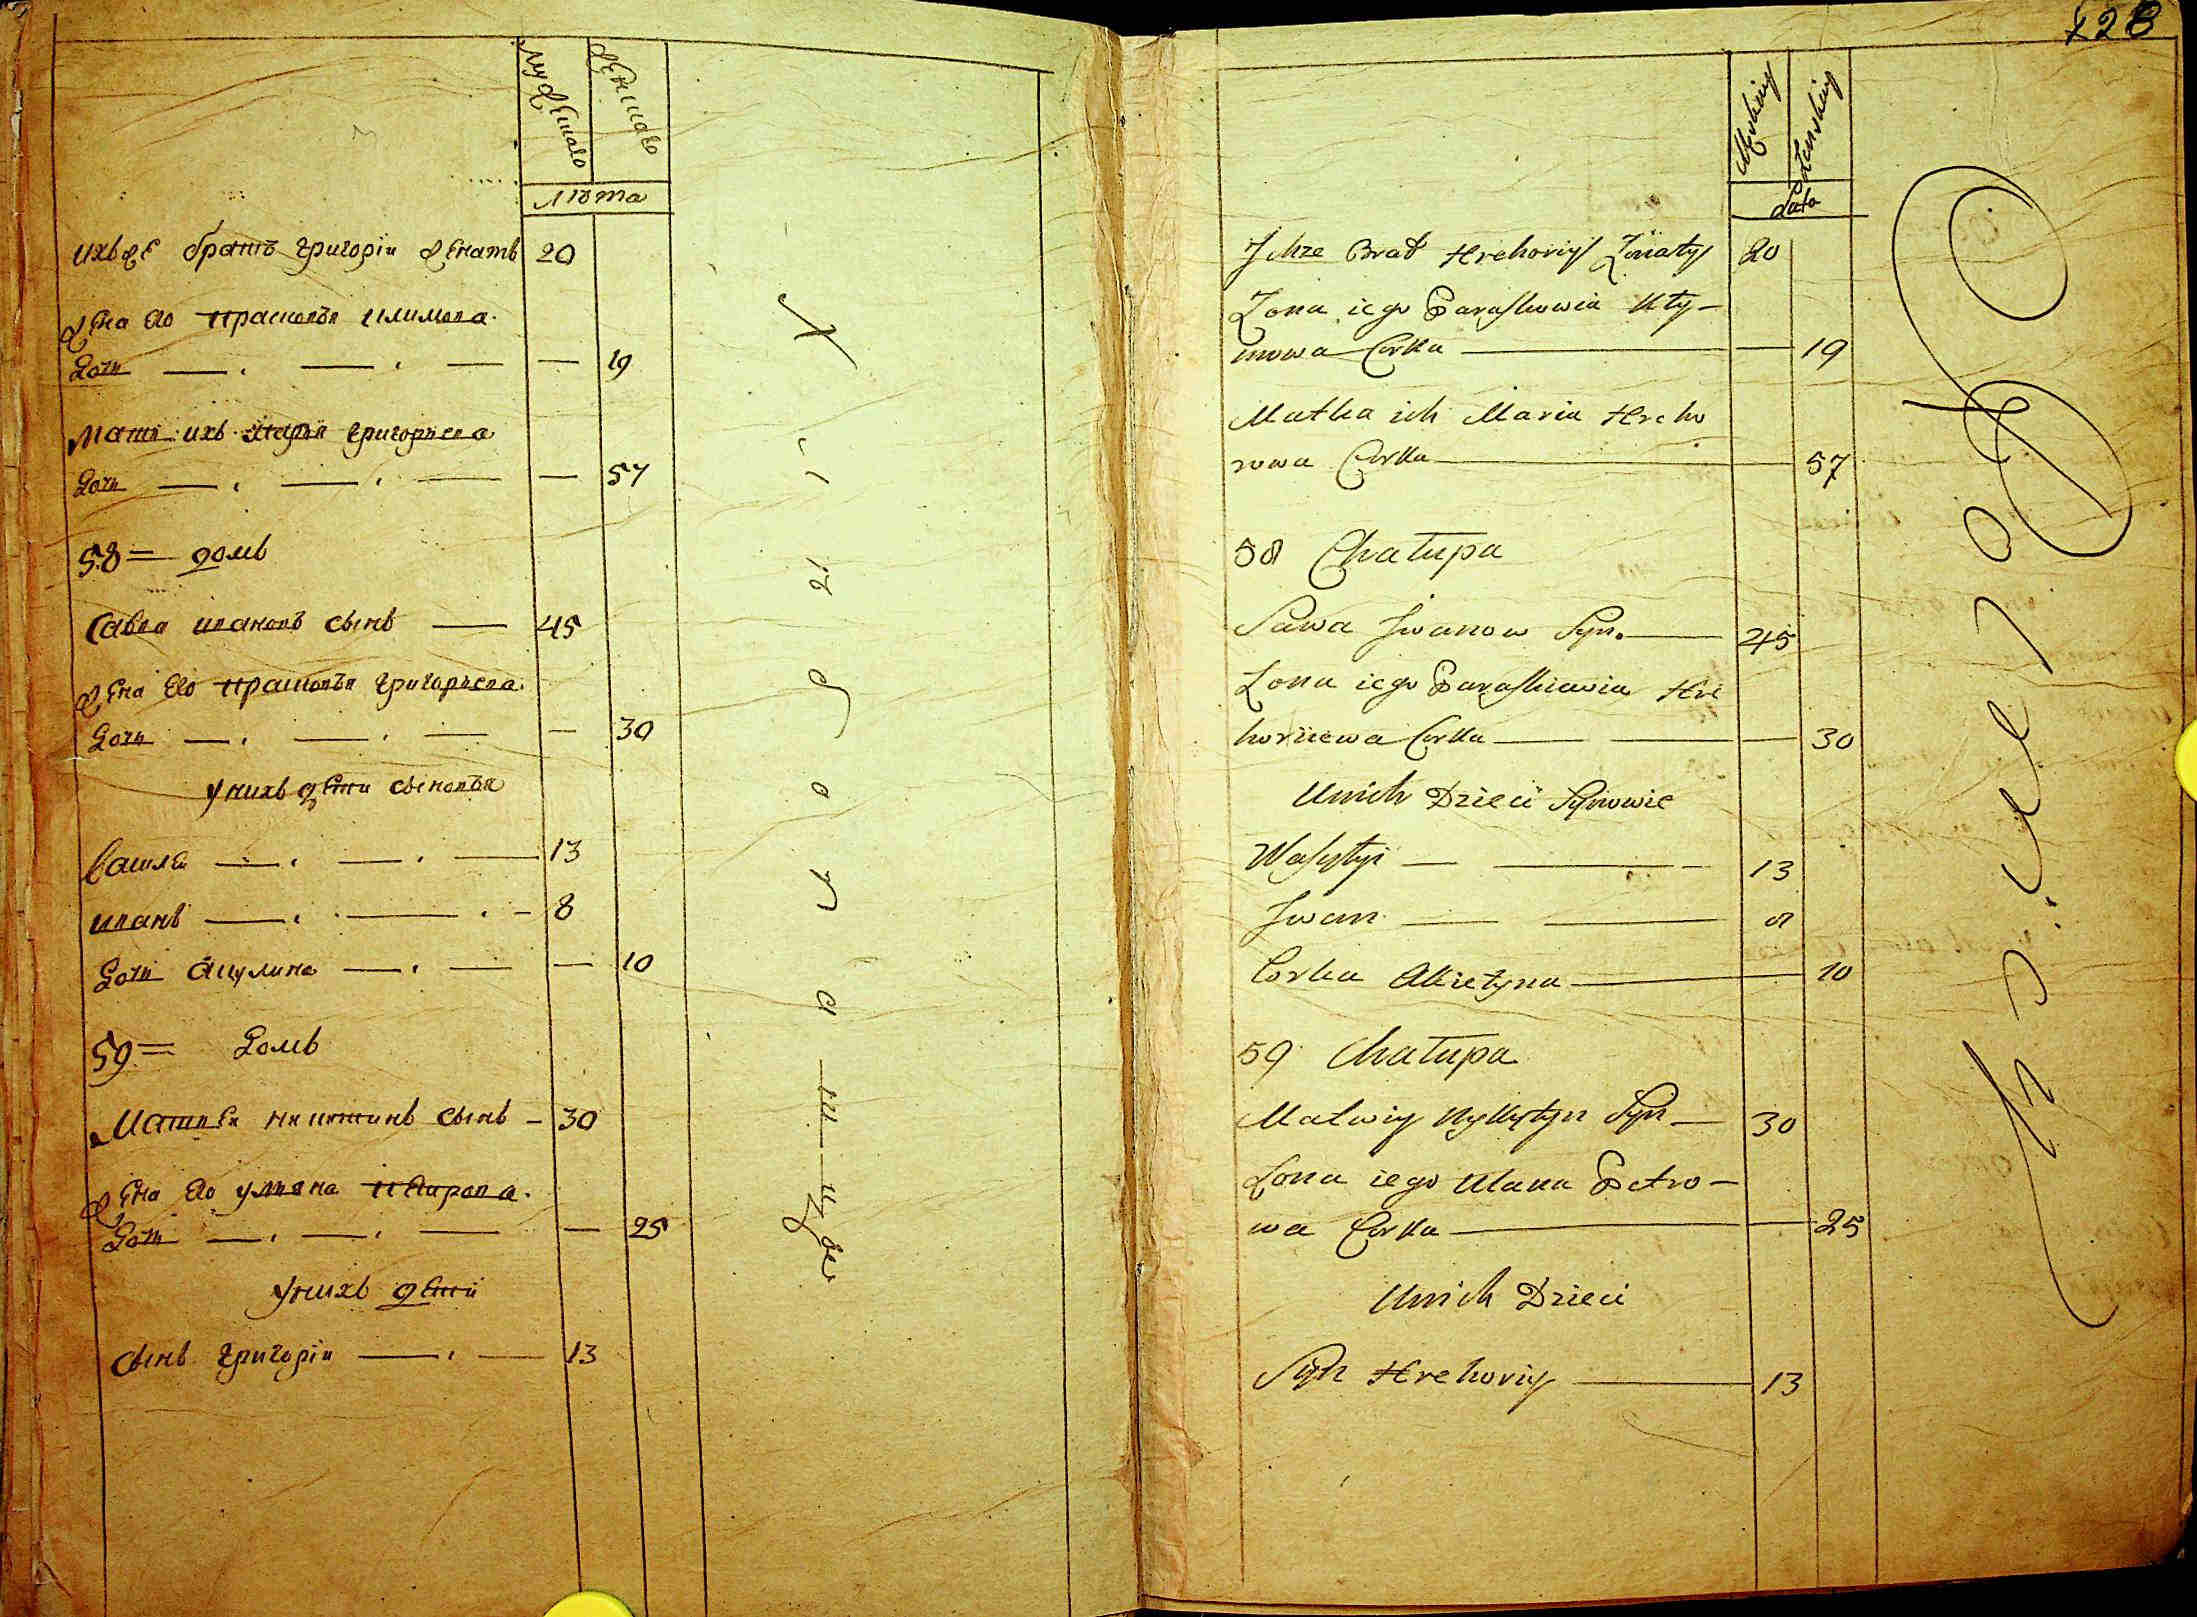 Мужеска
Женска
Лѣта
ихъже братъ григорій женатъ 20
жена его прасковѣя климова
дочь — 19
Мати ихъ марія григориева
дочь — 57
58 = домъ
Савва ивановъ сынъ — 45
жена его прасковѣя григориева
дочь — 30
у нихъ дети сыновѣя
василей — 13
иванъ — 8
дочь акулина — 10
59 = домъ
Матвей никитинъ сынъ — 30
жена его уляна петрова
дочь — 25
у нихъ дети
сынъ григорій — 13
128
Męskiey
Żenskiey
Lata
Ichze Brat Hrehoriy Żonaty 20
Żona iego Paraskowia Kły–
mowa Corka — 19
Matka ich Maria Hreho
rowa Corka — 57
58 Chałupa
Sawa Iwanow Syn — 45
Żona iego Paraskiawia Hre
horiiewa Corka — 30
Unich Dzieci Synowie
Wasyłyi — 13
Iwan — 8
Corka Akietyna — 10
59 Chałupa
Matwiy Nykytyn Syn — 30
Żona iego Ulana Petro–
wa Corka — 25
Unich Dzieci
Syn Hrehoriy — 13